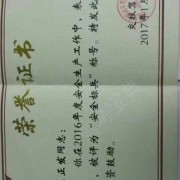 荣誉证书
正发同志：
你在2016年度安全生产工作中，表
，被评为“安全标兵”称号。特发此
资鼓励。
2017年1月